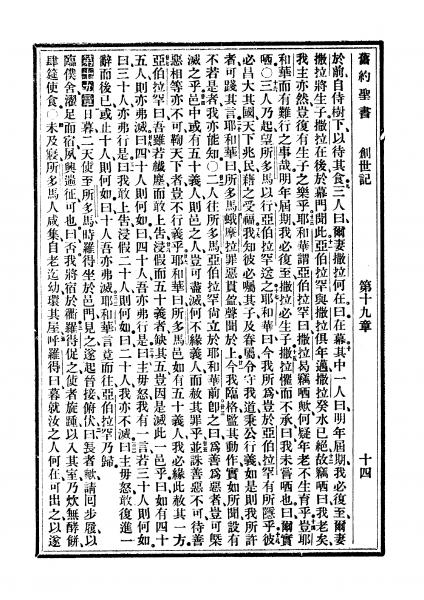 舊約聖書 創世記 第十九章 十四
於前自侍樹下以待其食三人曰爾妻撒拉何在曰在幕其中一人曰明年屆期我必復至爾妻
撒拉將生子撒拉在後於幕門聞此亞伯拉罕與撒拉俱年邁撒拉癸水已絕故竊哂曰我老矣
我主亦然豈復有生子之樂乎耶和華謂亞伯拉罕曰撒拉曷竊哂歟何疑年老不生育乎豈耶
和華而有難行之事哉明年屆期我必復至撒拉必生子撒拉懼而不承曰我未嘗哂也曰爾實
哂○三人乃起望所多馬以行亞伯拉罕送之耶和華曰今我所爲豈於亞伯拉罕有所隱乎彼
必昌大其國天下兆民藉之受福我知彼必囑其子及眷屬令守我道秉公行義如是則我所許
者可踐其言耶和華曰所多馬蛾摩拉罪惡貫盈聲聞於上今我臨格監其動作實如所聞設有
不若是者我亦能知○二人往所多馬亞伯拉罕尚立於耶和華前卽之曰爲善爲惡者豈可槩
滅之乎邑中或有五十義人則邑之人豈可盡滅何不緣義人而赦其罪乎並誅善惡不可待善
惡相等亦不可鞫天下者豈不行義乎耶和華曰所多馬邑如有五十義人我必緣此赦其一方
亞伯拉罕曰吾雖若纎塵而敢上告浸假而五十義者缺其五豈因是滅此一邑乎曰如有四十
五人則亦弗滅曰四十人則何如曰四十人吾亦弗行是曰主毋怒我有一言若三十人則何如
曰三十人亦弗行是曰我敢上告浸假二十人則何如曰二十人我亦不滅曰主毋怒敢復進一
辭而後已或止十人則何如曰十人吾亦弗滅耶和華言竟而往亞伯拉罕乃歸
第十九章日暮二天使至所多馬時羅得坐於邑門見之遂起晉接俯伏曰長者歟請回步履以
臨僕舍濯足而宿夙興遄征可也曰否我將宿於衢羅得促之使者旋踵以入其室乃炊無酵餅
肆筵使食○未及寢所多馬人咸集自老迄幼環其屋呼羅得曰暮就汝之人何在可出之以遂